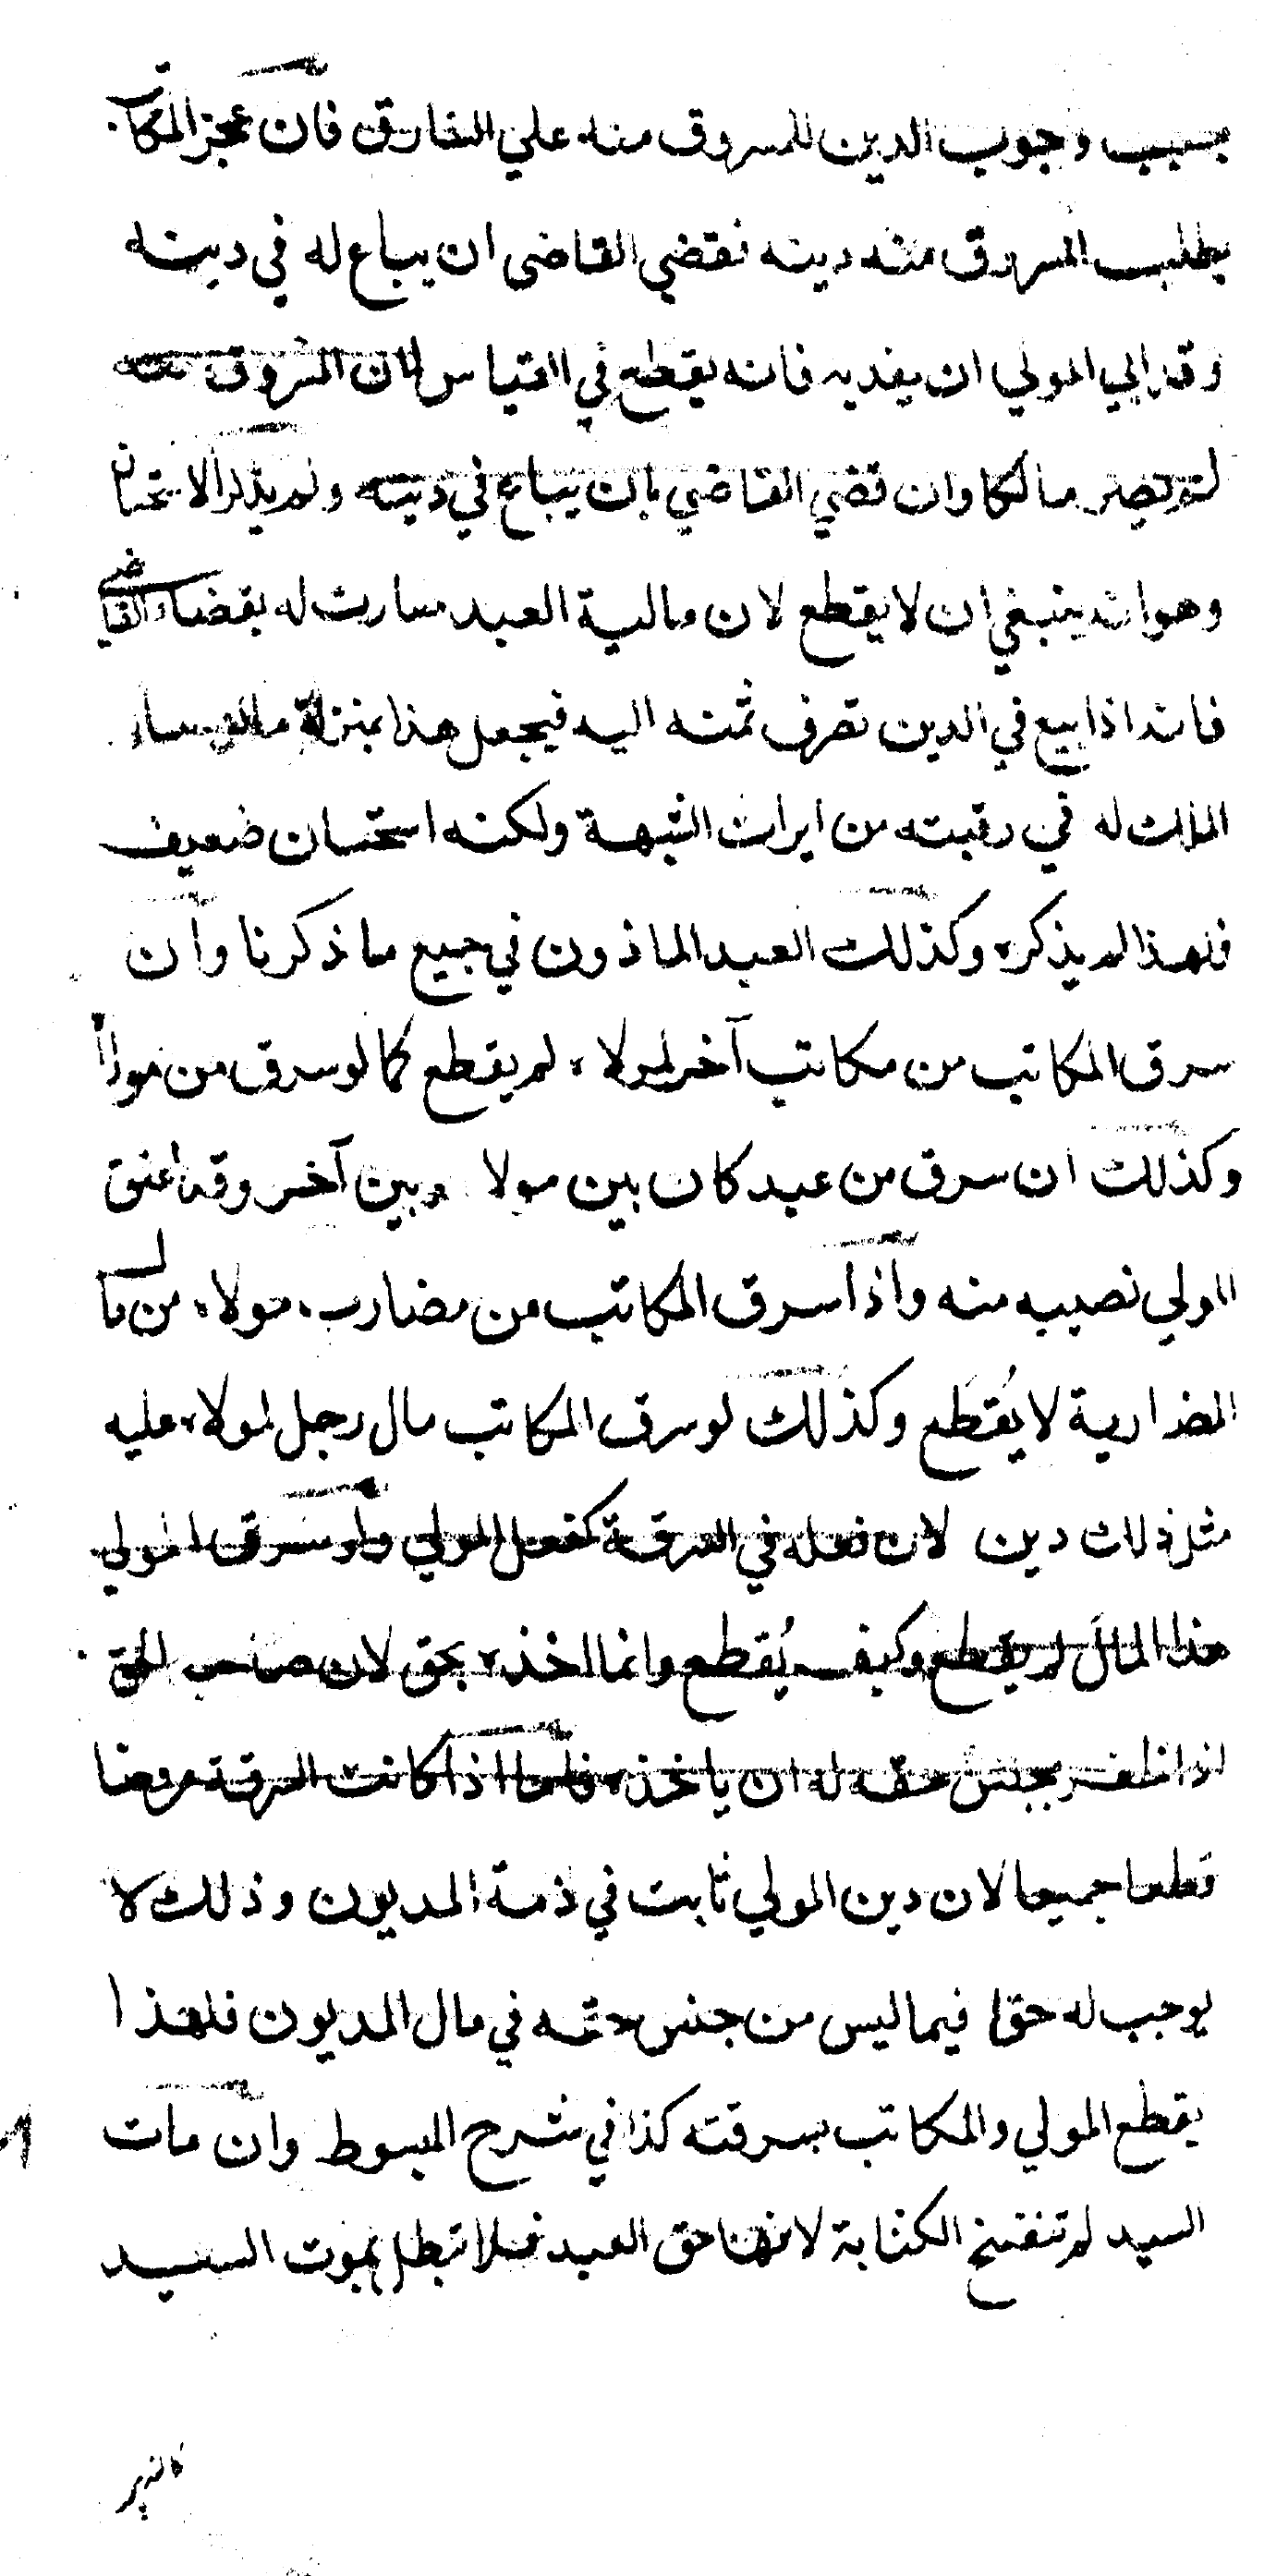 بسبب وجوب الدين للمسروق منه علي السارق فان عجز المكاتب
بطلب المسروق منه دينه فقضي القاضي ان يباع له في دينه
وقد ابي المولي ان يفديه فانه يقطع في القياس لان المسروق منه
لم يصر مالكا وان قضي القاضي بان يباع في دينه ولم يذكر الاستحسان
وهو انه ينبغي ان لا يقطع لان مالية العبد صارت له بقضاء القاضي
فانه اذا بيع في الدين تصرف ثمنه اليه فيجعل هذا بمنزلة
الملك له في رقبته من ايراث الشبهة ولكنه استحسان ضعيف
فلهذا لم يذكره وكذلك العبد الماذون في جميع ما ذكرنا وان
سرق المكاتب من مكاتب آخر لمولاه لم يقطع كما لو سرق من مولاه
وكذلك ان سرق من عبد كان بين مولاه وبين آخر وقد اعتق
المولي نصيبه منه واذا سرق المكاتب من مضارب مولاه من مال
المضاربة لا يُقطَع وكذلك لو سرق المكاتب مال رجل لمولاه عليه
مثل ذلك دين لان فعله في السرقة كفعل المولي ولو سرق المولي
هذا المال لم يقطع وكيف يُقطع وانما اخذه بحق لان صاحب الحق
اذا ظفر بجنس حقه له ان ياخذه فاما اذا كانت السرقة عروضا
قطعا جميعا لان دين المولي ثابت في ذمة المديون وذلك لا
يوجب له حقا فيما ليس من جنس حقه في مال المديون فلهذا
يقطع المولي والمكاتب بسرقته كذا في شرح المبسوط وان مات
السيد لم تنفسخ الكتابة لانها حق العبد فلا تبطل بموت السيد